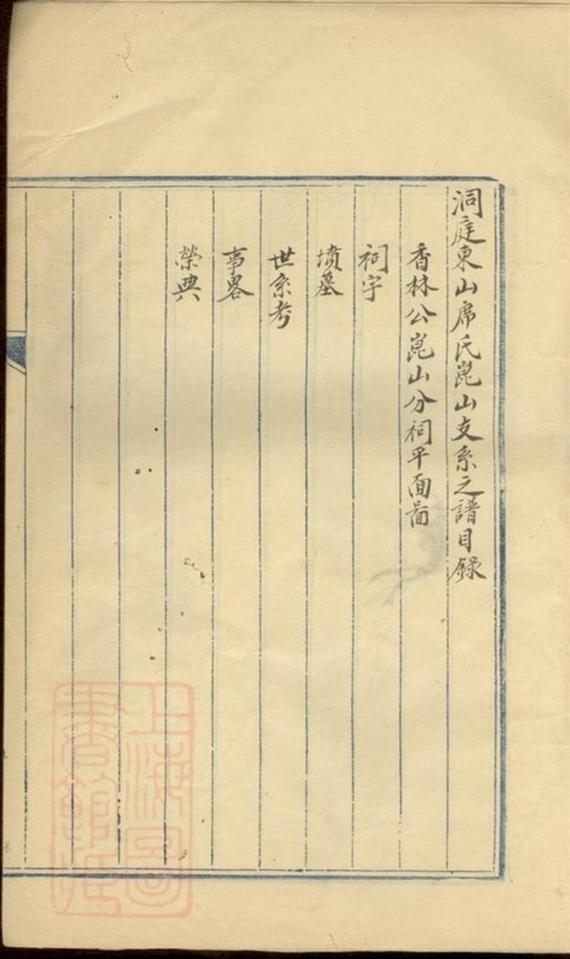 洞庭東山席氏崑山支系之譜目錄
香林公崑山分祠平面啚
祠宇
墳墓
世系考
事畧
榮典
上海圖
書館藏